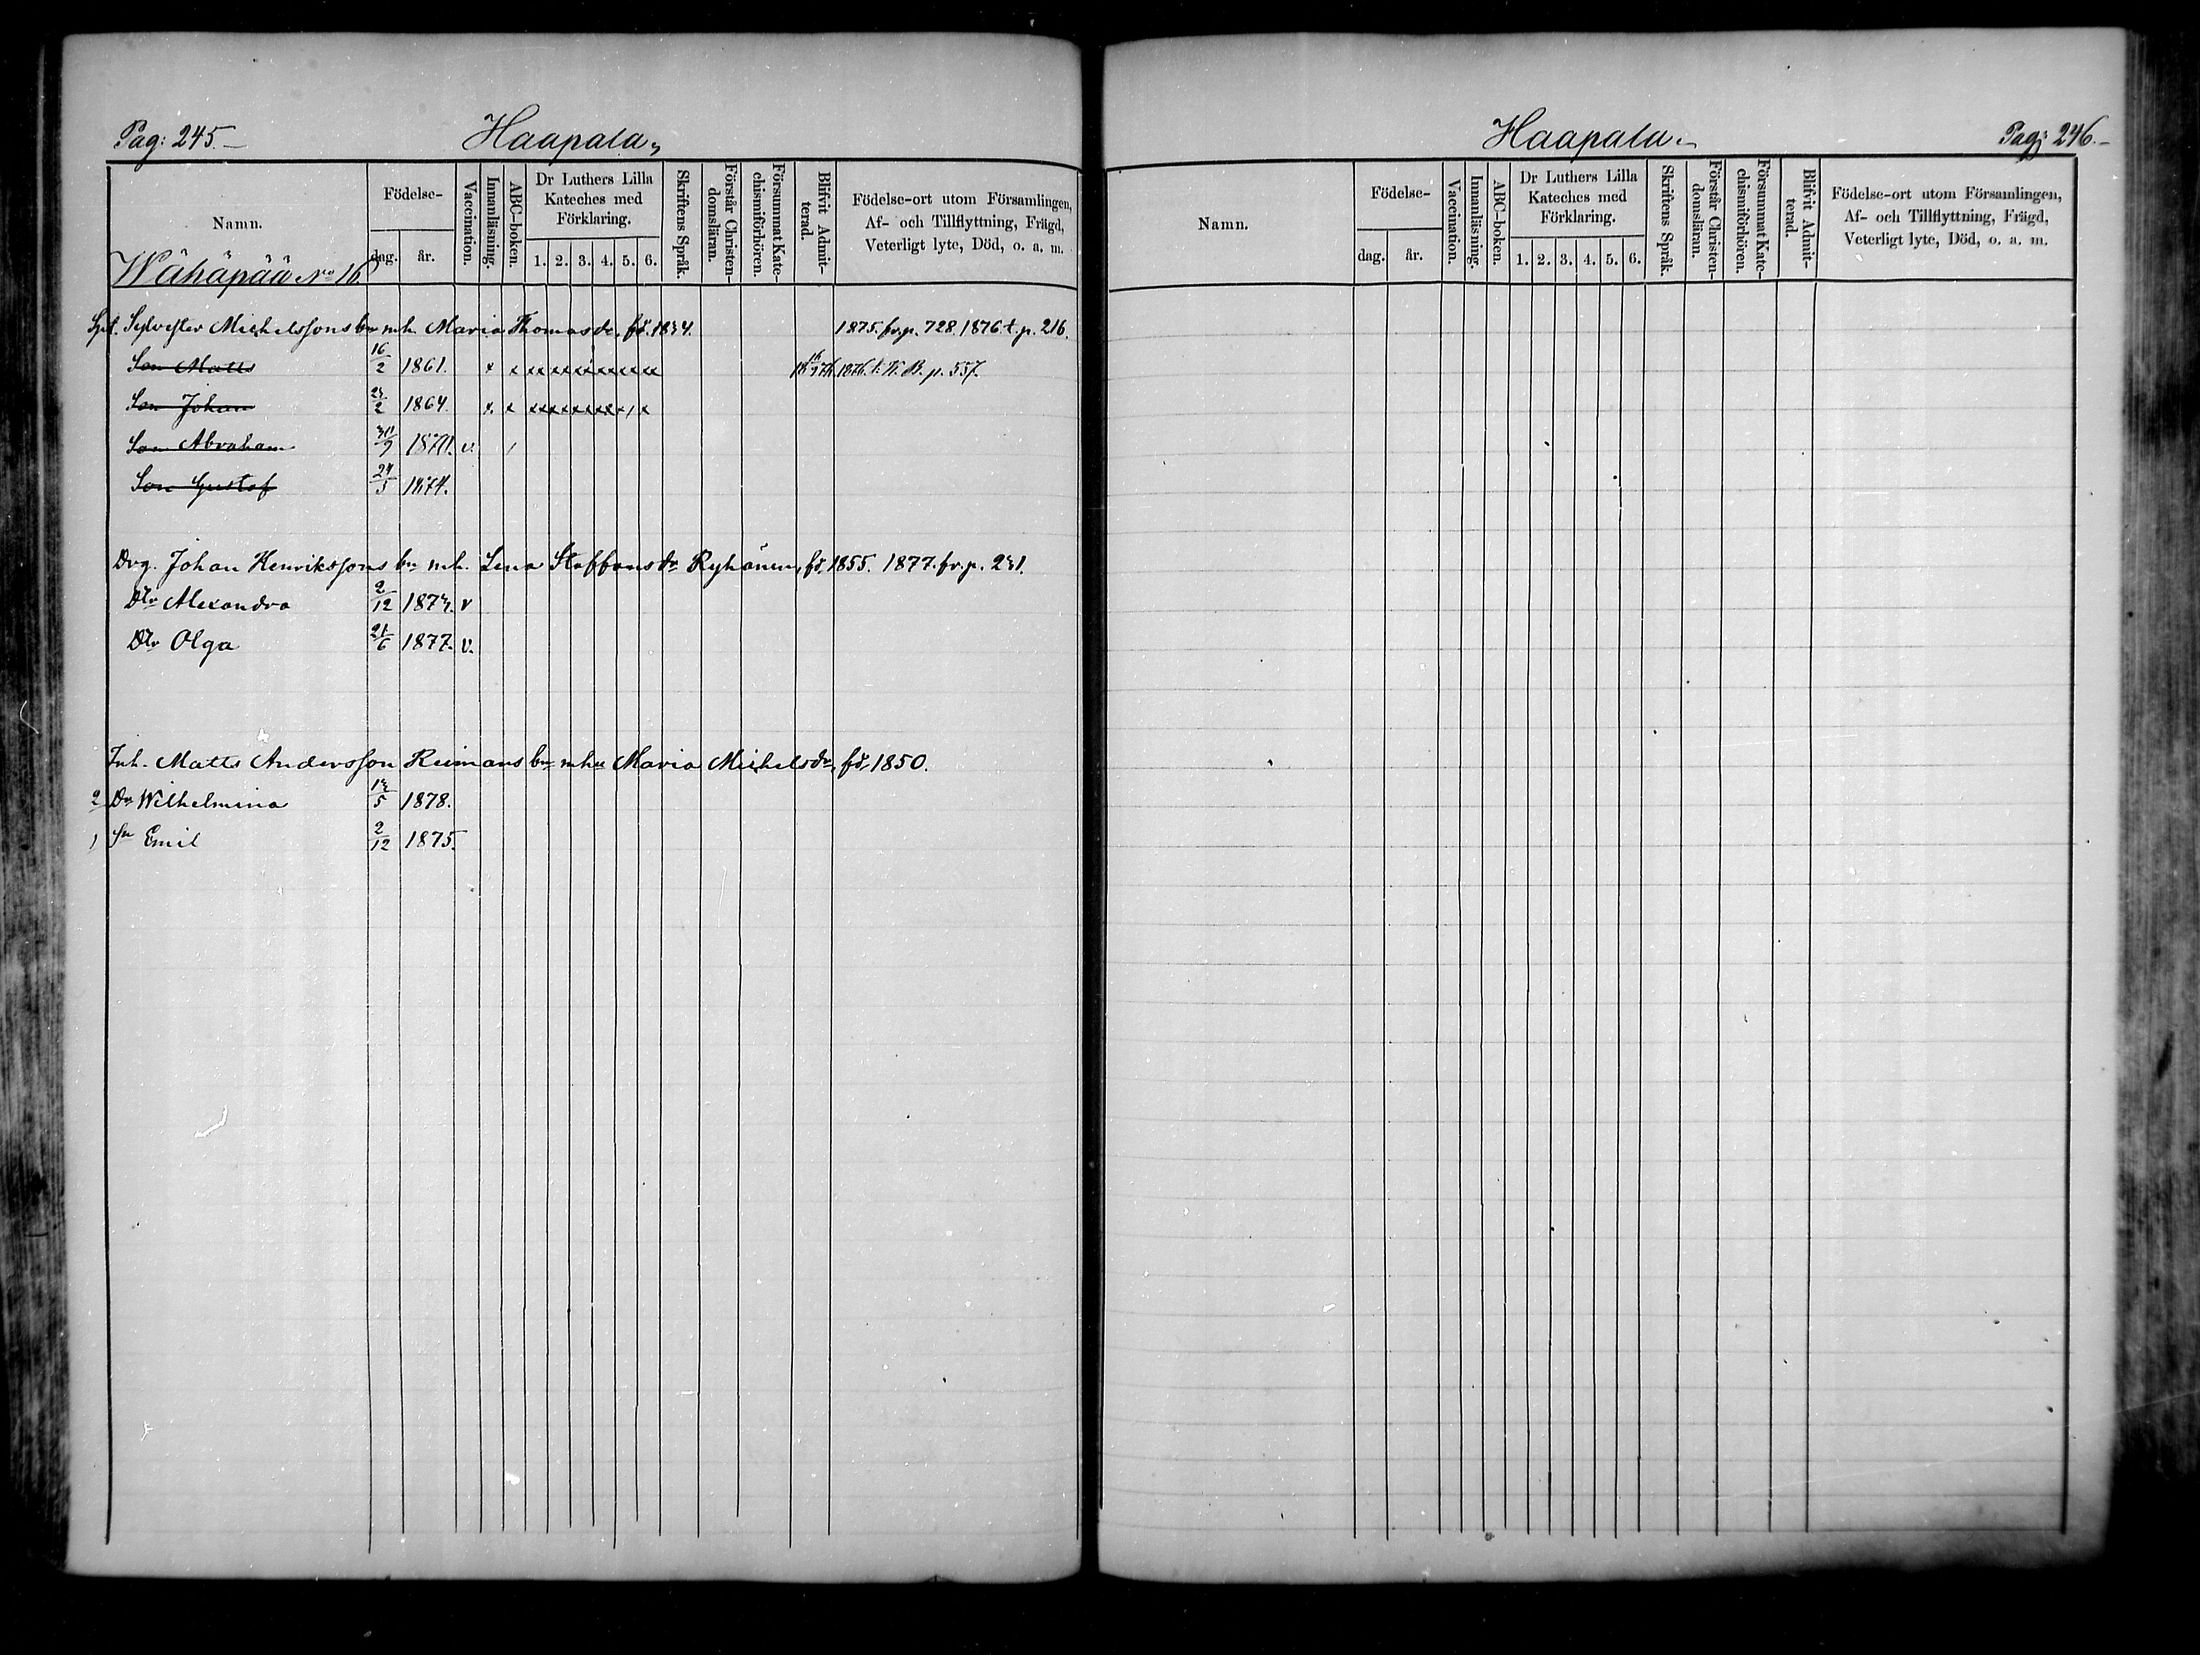 Pag: 245.
Haapala
Namn.
Födelse-
dag. år.
Vaccination.
Innanläsning.
ABC-boken.
Dr Luthers Lilla Kateches med Förklaring.
1. 2. 3. 4. 5. 6.
Skriftens Språk.
Förstår Christendomsläran.
Försummat Katechismiförhören.
Blifvit Admitterad.
Födelse-ort utom Församlingen, Af- och Tillflyttning, Frägd, Veterligt lyte, Död, o. a. m.
Wähäpää No 16.
Sylvester Michelssons bn mh. Maria Thomasdr, fd. 1834. 1875. fr. p. 728. 1876 t. p. 216.
Son Matts 16/2 1861. x x xxxxxxxxxx 1876 t. p. 557.
Son Johan 1864. x. x xxxxxxxx x
Son Abraham v.
Son Gustaf 24/5 1874.
Drg. Johan Henrikssons bn mh. Lena Staffansdr Ryhänen, fd, 1855. 1877. fr. p. 231.
Dtr Alexandra 2/12 1873. v
Dtr Olga 21/6 1877. v.
Inh. Matts Andersson Reimans bn mhu Maria Michelsdr, fd, 1850.
2 Dr Wilhelmina 13/5 1878.
1 Sn Emil 2/12 1875.
Haapala
Pag: 246.
Namn.
Födelse-
dag. år.
Vaccination.
Innanläsning.
ABC-boken.
Dr Luthers Lilla Kateches med Förklaring.
1. 2. 3. 4. 5. 6.
Skriftens Språk.
Förstår Christendomsläran.
Försummat Katechismiförhören.
Blifvit Admitterad.
Födelse-ort utom Församlingen, Af- och Tillflyttning, Frägd, Veterligt lyte, Död, o. a. m.